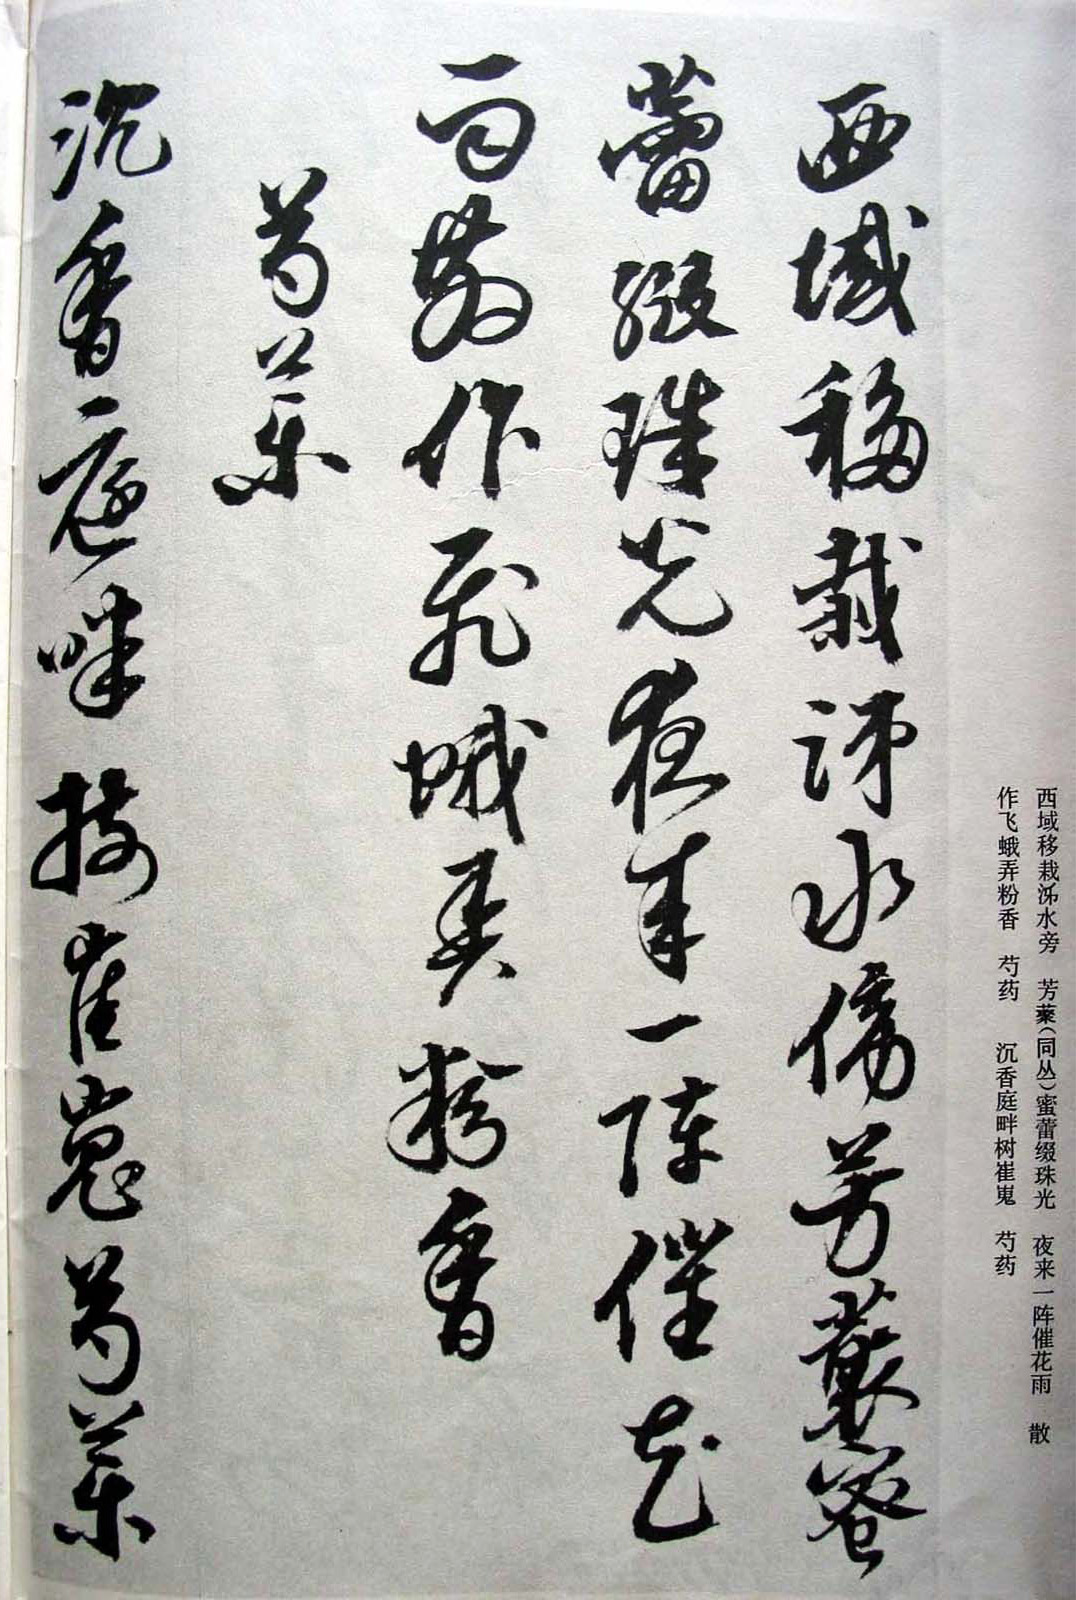 西域移栽泲水旁　芳藂(同丛)蜜蕾缀珠光　夜来一阵催花雨　散
作飞蛾弄粉香　芍药　沉香庭畔树崔嵬　芍药
西域移栽泲水傍芳藂蜜
蕾綴珠光夜来一陣催花
雨散作飛蛾弄粉香
芍藥
沉香庭畔樹崔嵬芍藥